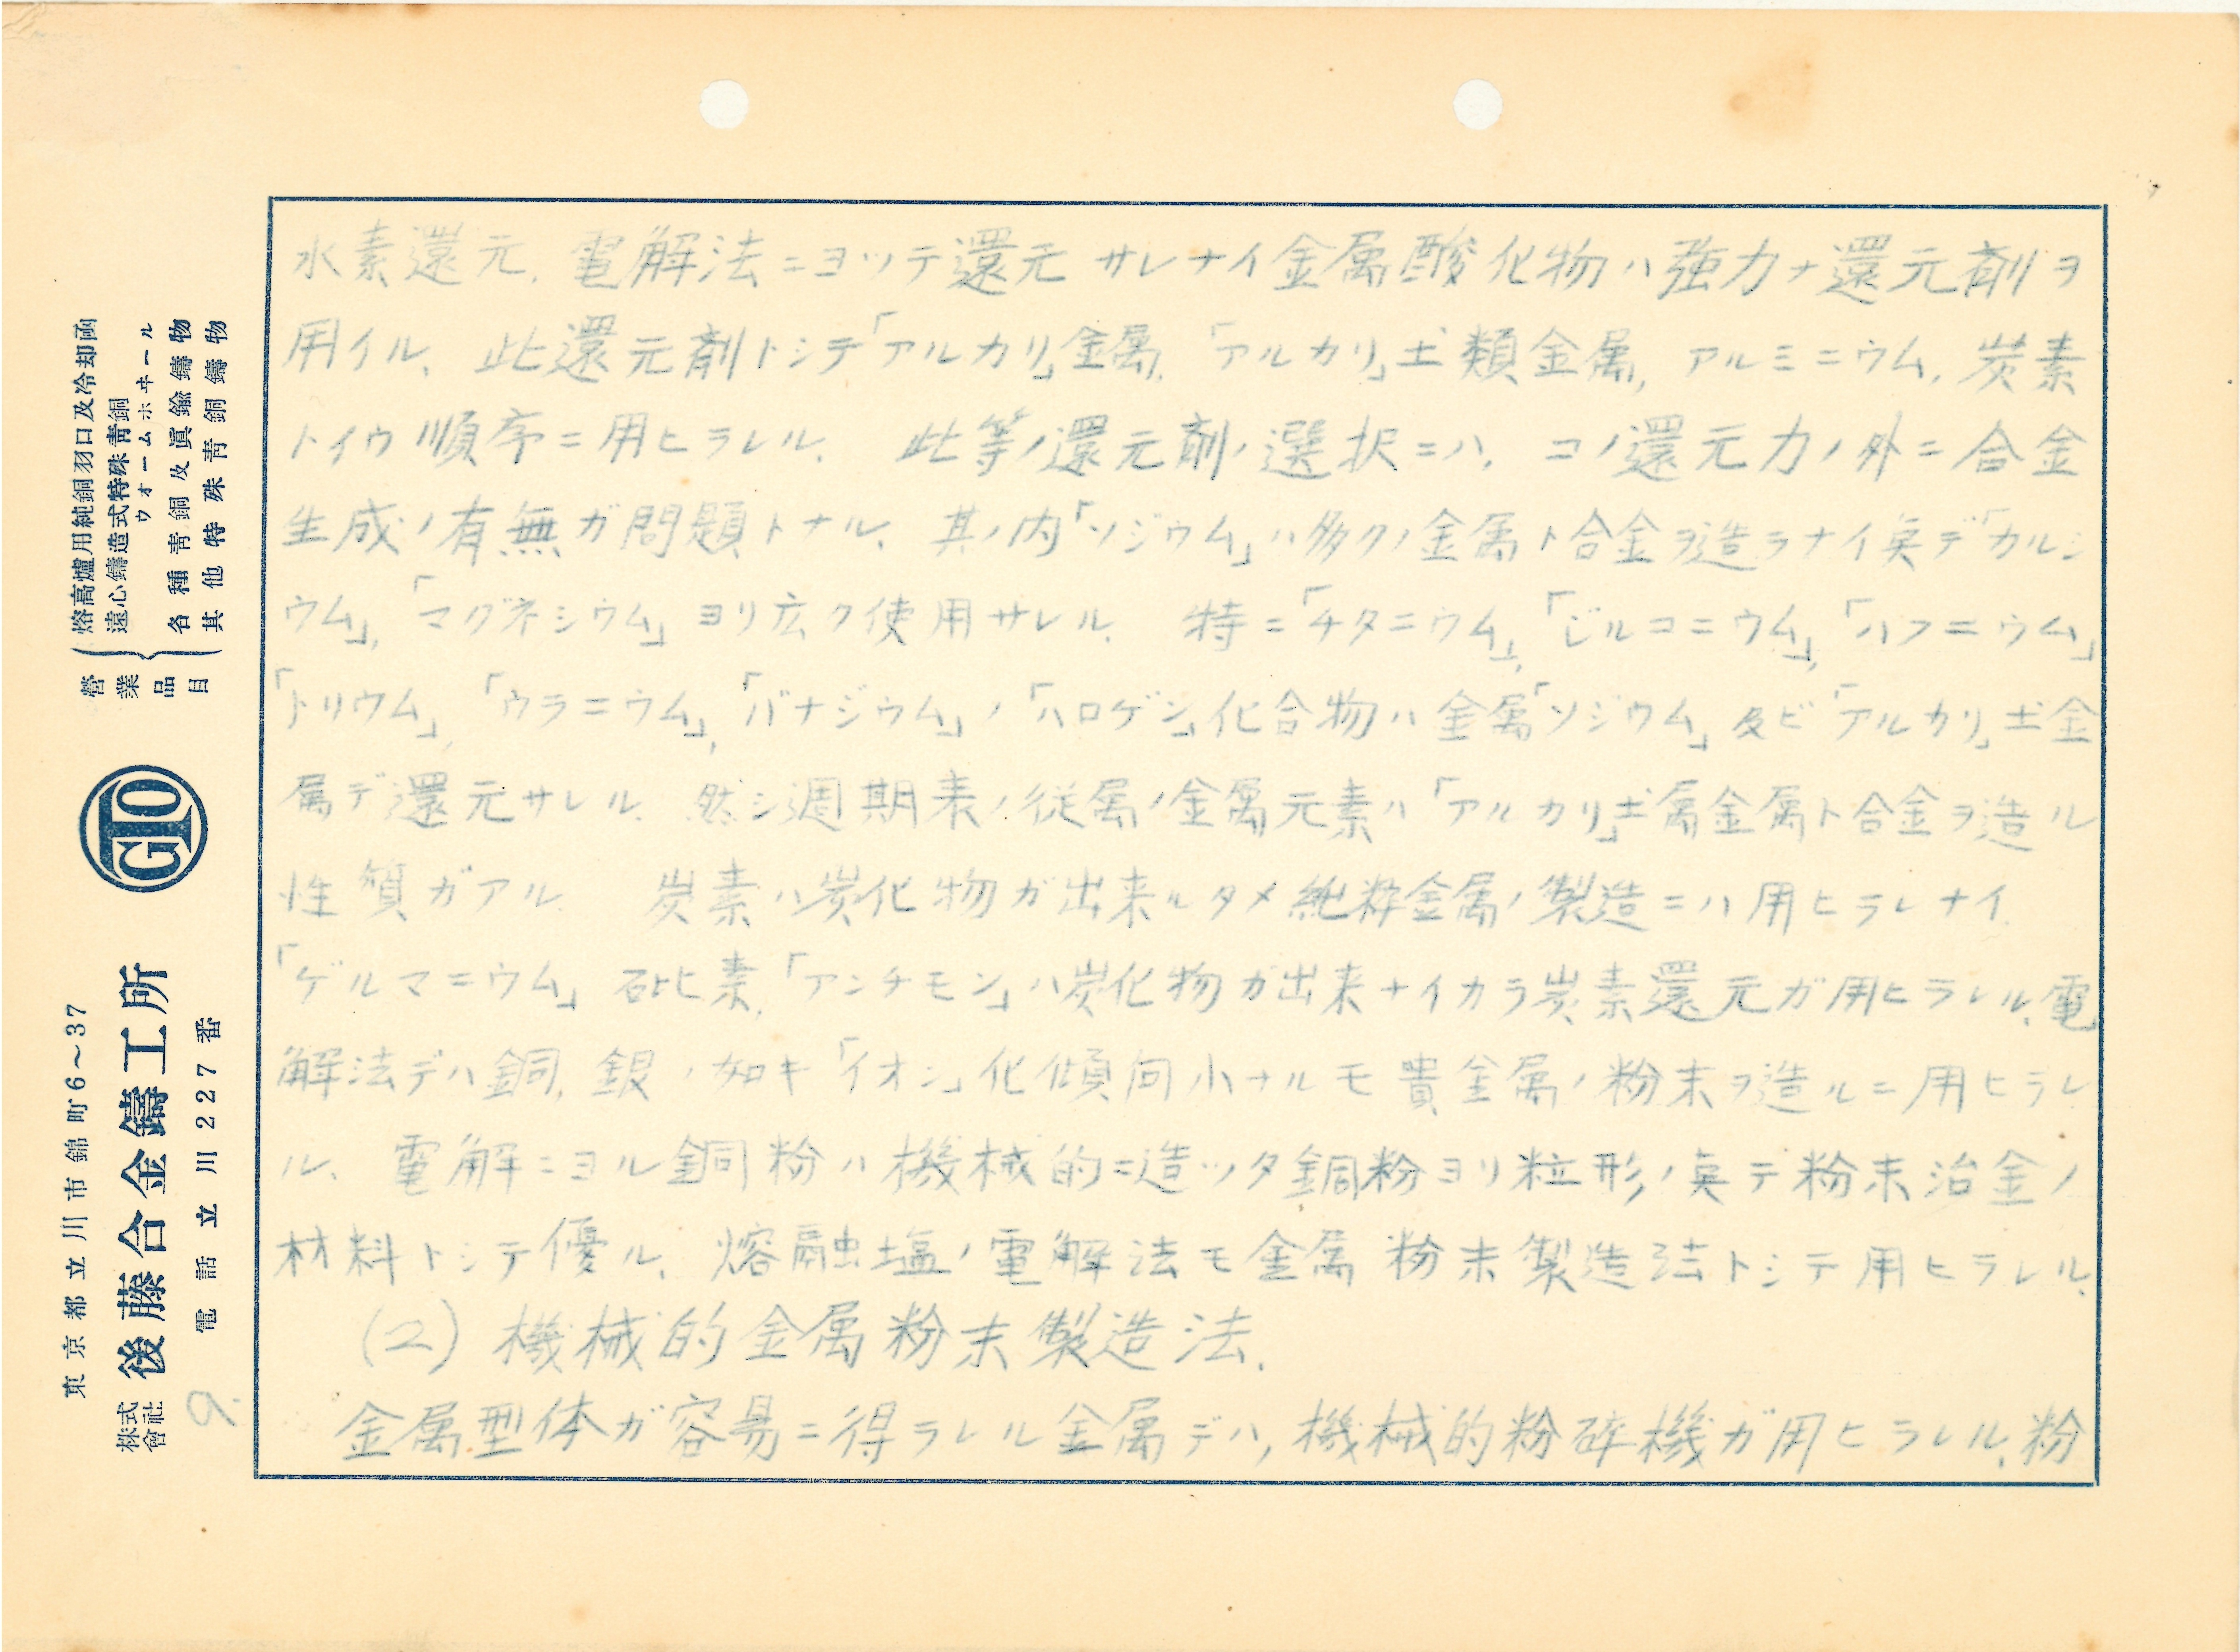 水素還元、電解法ニヨッテ還元サレナイ金属酸化物ハ強力ナ還元剤ヲ
用イル、此還元剤トシテ「アルカリ」金属、「アルカリ」土類金属、アルミニウム、炭素
トイウ順序ニ用ヒラレル、 此等ノ還元剤ノ選択ニハ、コノ還元力ノ外ニ合金
生成ノ有無ガ問題トナル、其ノ内「ソジウム」ハ多クノ金属ト合金ヲ造ラナイ奌デ「カルシ
ウム」、「マグネシウム」ヨリ広ク使用サレル、 特ニ「チタニウム」、「ジルコニウム」、「ハフニウム」
「トリウム」、「ウラニウム」、「バナジウム」ノ「ハロゲン」化合物ハ金属「ソジウム」及ビ「アルカリ」土金
属デ還元サレル、然シ週期表ノ従属ノ金属元素ハ「アルカリ」土属金属ト合金ヲ造ル
性質ガアル、 炭素ハ炭化物ガ出来ルタメ純粋金属ノ製造ニハ用ヒラレナイ、
「ゲルマニウム」砒素、「アンチモン」ハ炭化物ガ出来ナイカラ炭素還元ガ用ヒラレル、電
解法デハ銅、銀ノ如キ「イオン」化傾向小ナルモ貴金属ノ粉末ヲ造ルニ用ヒラレ
ル、 電解ニヨル銅粉ハ機械的ニ造ッタ銅粉ヨリ粒形ノ奌デ粉末治金ノ
材料トシテ優ル、熔融塩ノ電解法モ金属粉末製造法トシテ用ヒラレル、
(2) 機械的金属粉末製造法、
金属型体ガ容易ニ得ラレル金属デハ、機械的粉砕機ガ用ヒラレル、粉
営業品目
熔高爐用純銅羽口及冷却函
遠心鑄造式特殊靑銅
ウォームホヰール
各種靑銅及眞鍮鑄物
其他特殊靑銅鑄物
GTO
東京都立川市錦町6~37
株式會社 後藤合金鑄工所
電話立川227番
9.